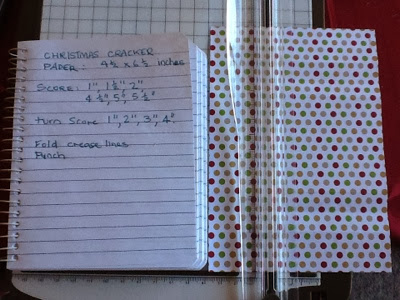 CHRISTMAS CRACKER
PAPER: 4½ x 6½ inches
SCORE: 1", 1½", 2",
4½", 5", 5½"
turn Score 1", 2", 3", 4".
Fold crease lines
Punch